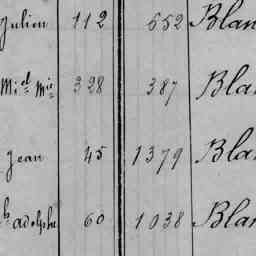 Julien 112 652 Blan
Miel Mie 328 387 Bla
Jean 45 1379 Bla
h adolphe 60 1038 Blan